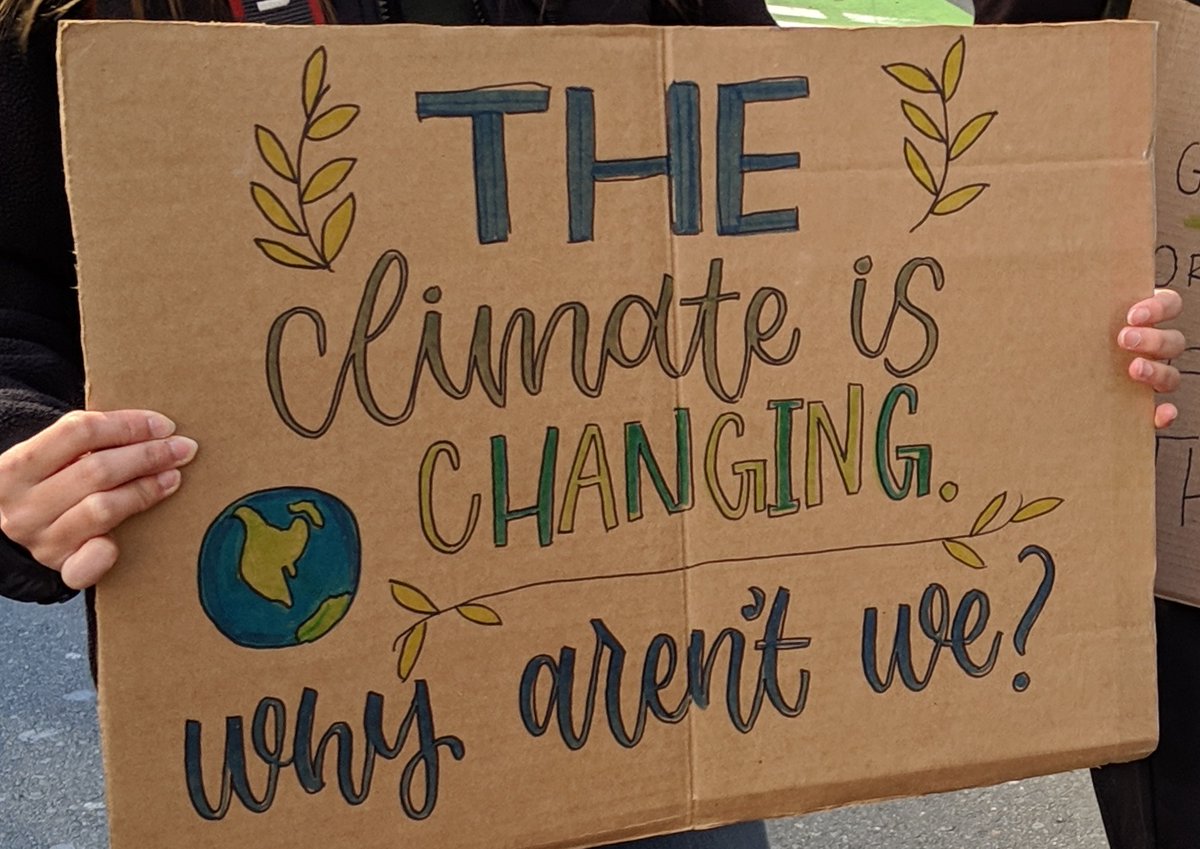 THE
climate is
CHANGING.
why aren't we?
G
OR